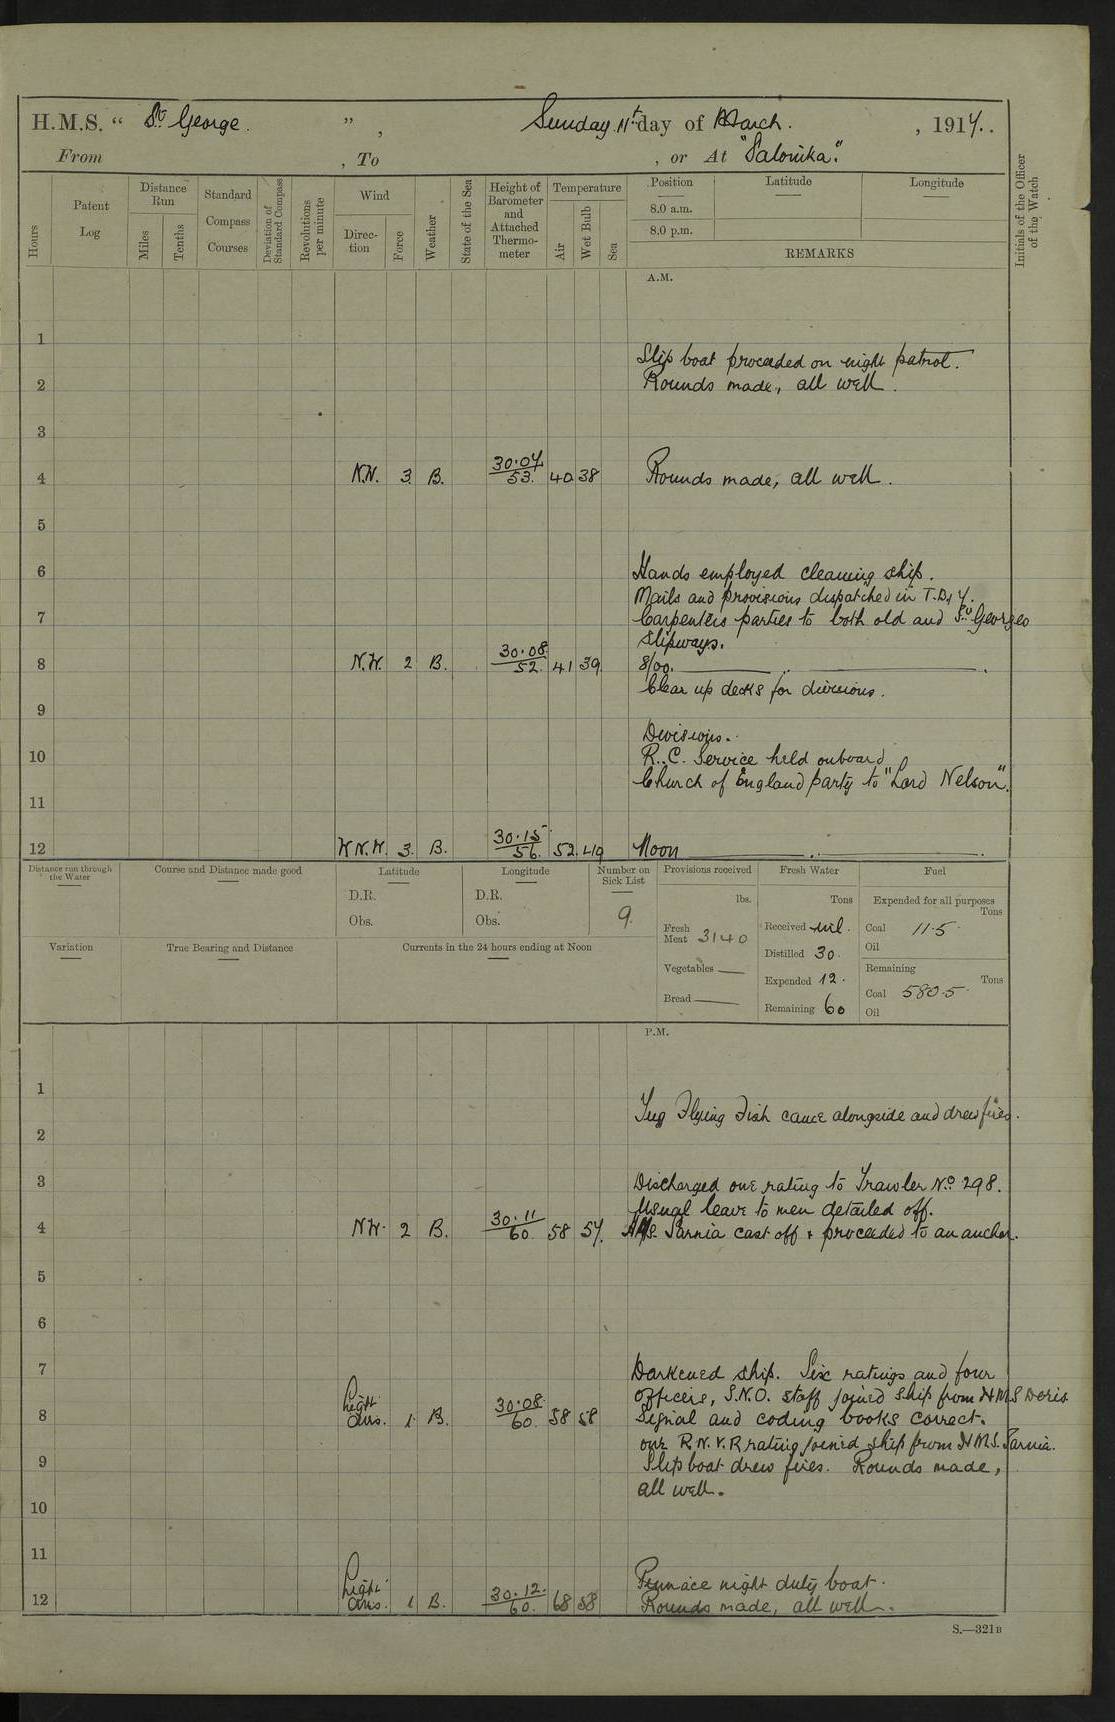 H.M.S. “ St George. ” , Sunday 11th day of March. , 1917.
From , To , or At "Salonika."
Hours
Patent Log
Distance Run
Miles
Tenths
Standard Compass Courses
Deviation of Standard Compass
Revolutions per minute
Wind
Direction
Force
Weather
State of the Sea
Height of Barometer and Attached Thermometer
Temperature
Air
Wet Bulb
Sea
Position Latitude Longitude
8.0 a.m.
8.0 p.m.
REMARKS
Initials of the Officer of the Watch
A.M.
1
Slip boat proceeded on night patrol.
2 Rounds made, all well.
3
4 N.W. 3. B. 30.07 53. 40 38 Rounds made, all well.
5
6 Hands employed cleaning ship.
Mails and provisions dispatched in T.B.
7 Carpenters parties to both old and St Georges
slipways.
8 N.W. 2 B. 30.08 52. 41 39 8/00.
Clear up decks for divisions.
9
Divisions.
10 R.C. Service held onboard
Church of England party to "Lord Nelson".
11
12 W.N.W. 3. B. 30.15 56. 52. 49 Noon
Distance run through the Water
Course and Distance made good
Latitude
D.R.
Obs.
Longitude
D.R.
Obs.
Number on Sick List
9.
Provisions received
lbs.
Fresh Meat 3140
Vegetables
Bread
Fresh Water
Tons
Received nil.
Distilled 30.
Expended 12.
Remaining 60
Fuel
Expended for all purposes
Tons
Coal 11.5
Oil
Remaining
Tons
Coal 580.5
Oil
Variation
True Bearing and Distance
Currents in the 24 hours ending at Noon
P.M.
1
Tug Flying Fish came alongside and drew fires.
2
3 Discharged one rating to Trawler No. 298.
Usual leave to men detailed off.
4 N.W. 2 B. 30.11 60. 58 57. HMS. Sarnia cast off & proceeded to an anchor.
5
6
7 Darkened ship. Six ratings and four
Officers, S.N.O. staff joined ship from HMS Doris
8 Light Airs. 1 B. 30.08 60. 58 58 Signal and coding books correct.
one R.N.V.R rating joined ship from HMS. Sarnia.
9 Slip boat drew fires. Rounds made,
all well.
10
11
Pinnace night duty boat.
12 Light Airs. 1 B. 30.12. 60. 68 58 Rounds made, all well.
S.—321B